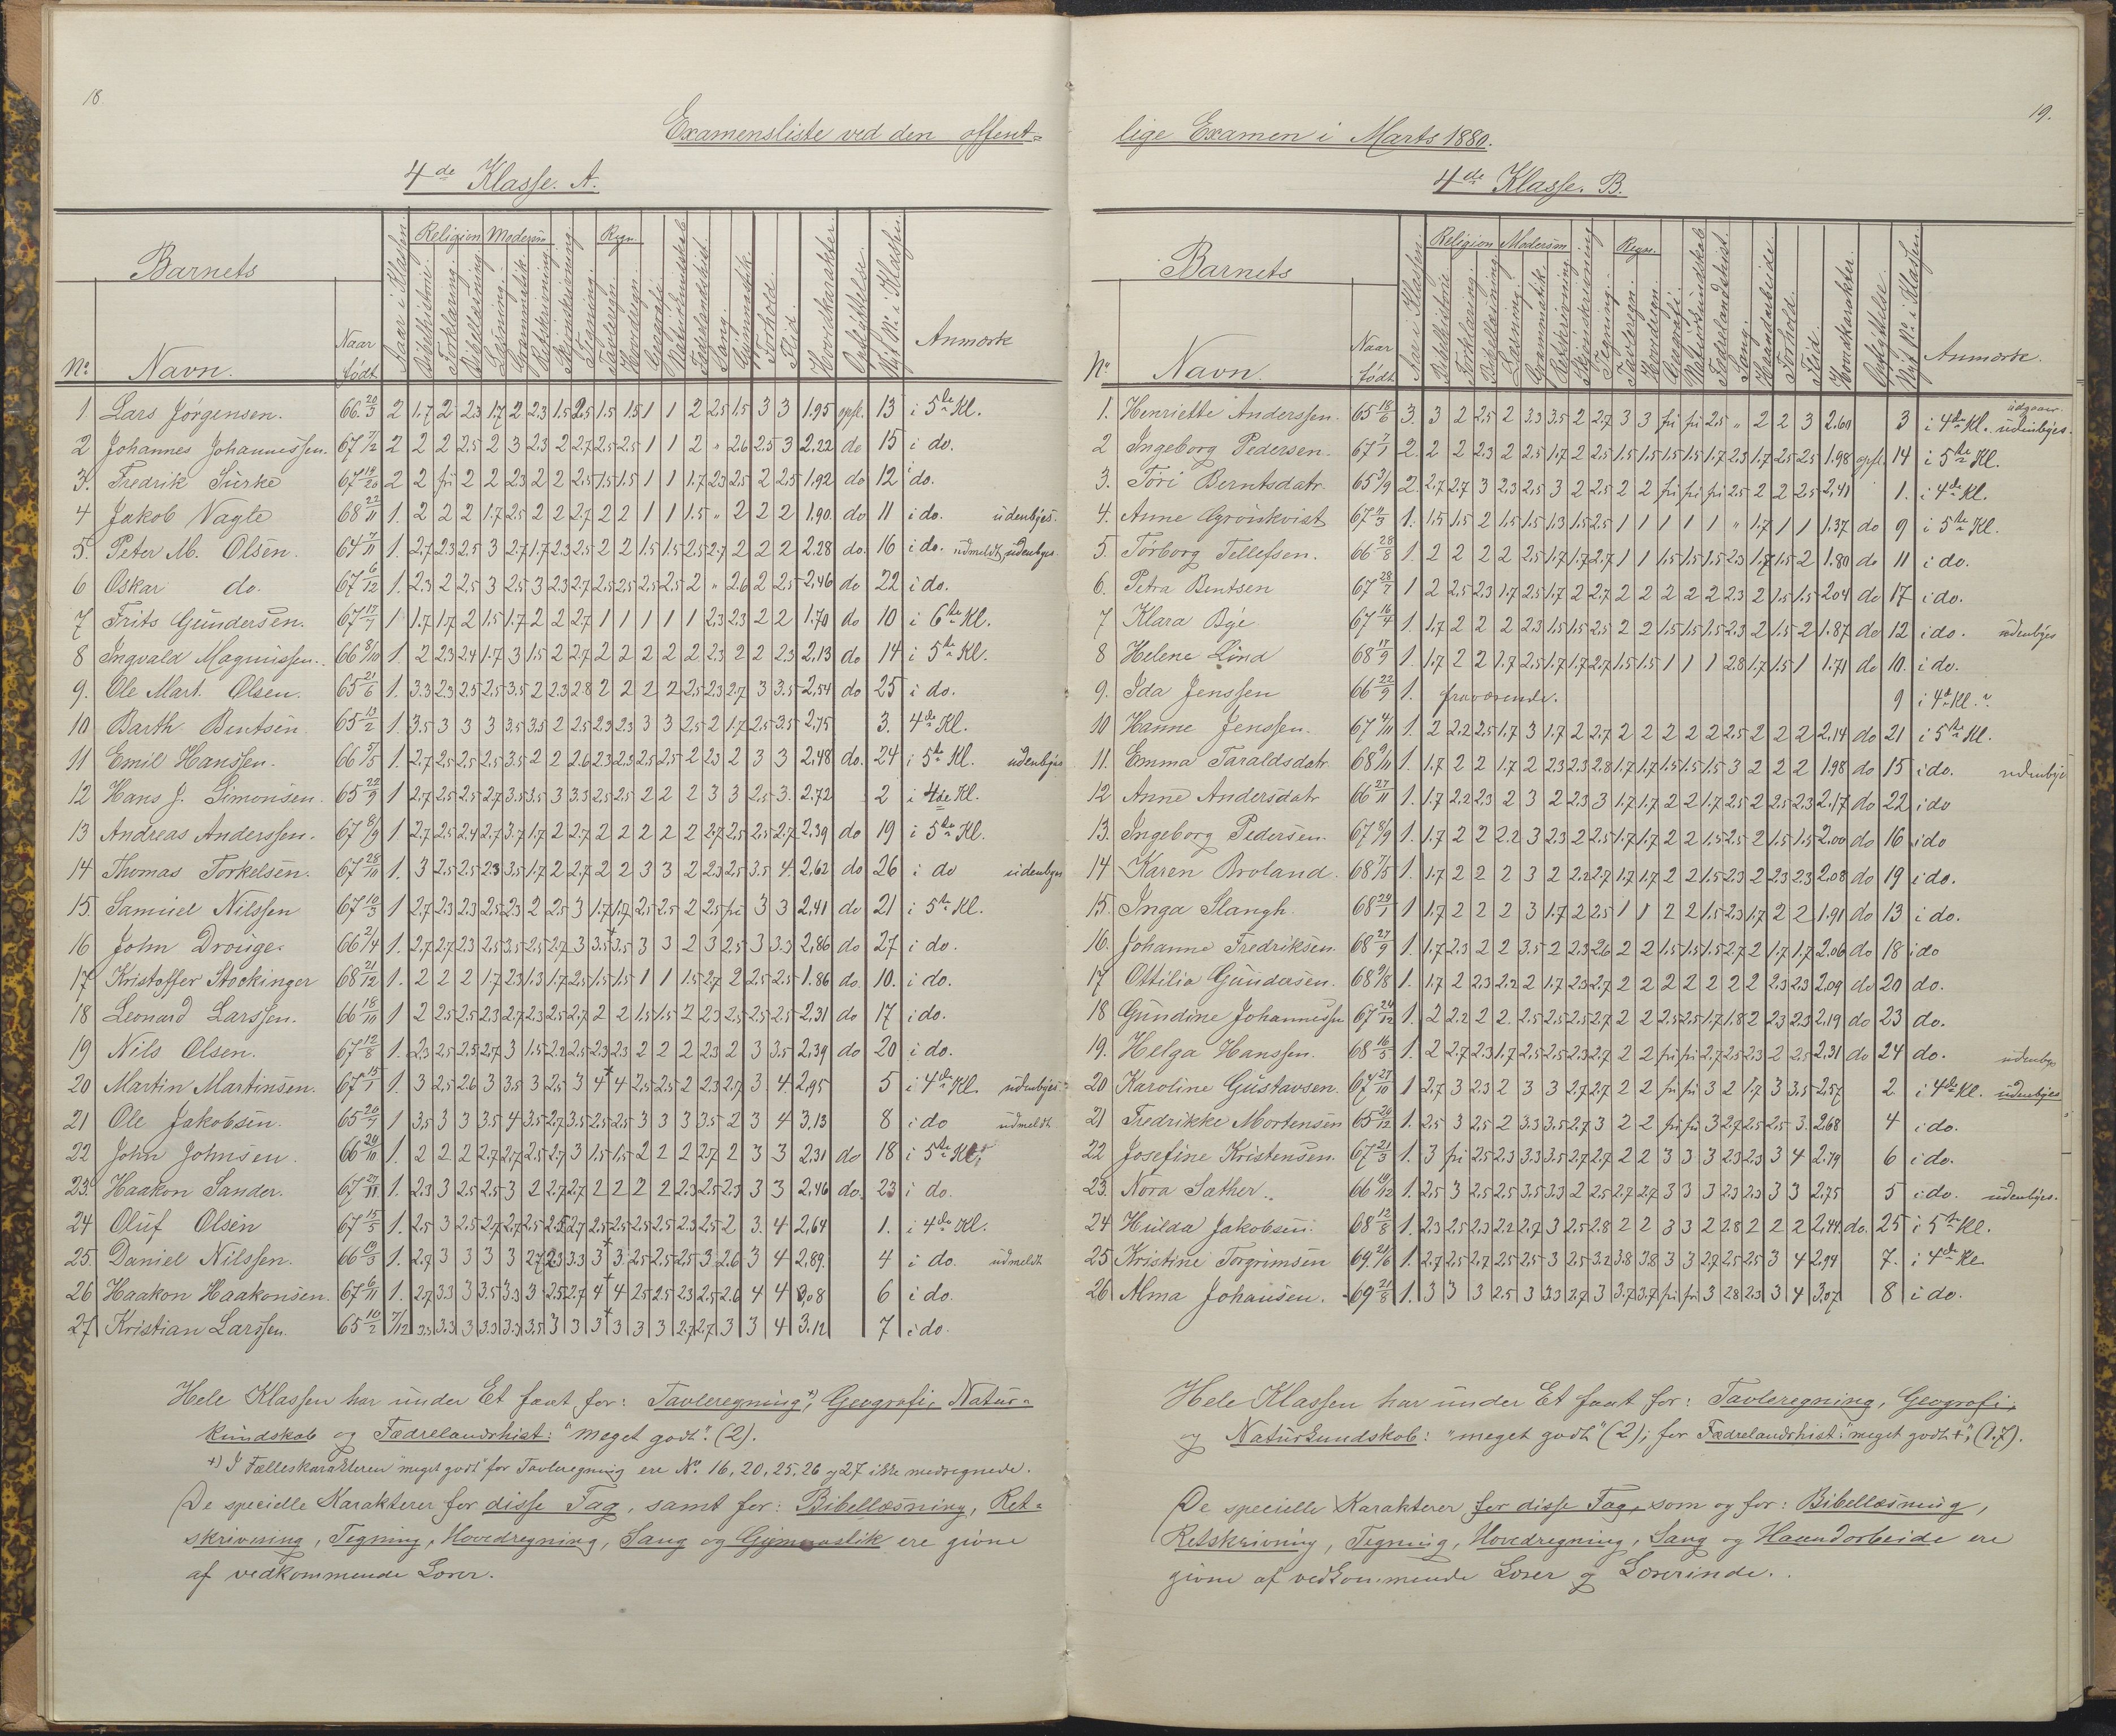 18.
Examensliste ved den offent=
4de Klasse. A.
Barnets
No
Navn.
Naar født
Aar i Klassen.
Religion
Bibelhistorie.
Forklaring.
Bibellæsning.
Modersm.
Læsning.
Grammatik.
Retskrivning.
Skjønskrivning.
Tegning.
Regn.
Tavleregn.
Hovedregn.
Geografi.
Naturkundskab.
Fædrelandshist.
Sang.
Gymnastik
Forhold.
Flid.
Hovedkarakter.
Opflyttelse.
Nyt No i Klassen.
Anmærk
1. Lars Jörgensen. 66 20/3 2 1.7 2 2.3 1.7 2 2.3 1.5 2.5 1.5 1.5 1 1 2 2.5 1.5 3 3 1.95 opfl. 13 i 5te Kl.
2 Johannes Johannessen. 2 2 2 2.5 2 3 2.3 2 2.7 2.5 2.5 1 1 2 " 2.6 2.5 3 2.22 do 15 i do.
3. Fredrik Surke 2 2 fri 2 2 2.3 2 2 2.5 1.5 1.5 1 1 1.7 2.3 2.5 2 2.5 1.92 do 12 i do.
4 Jakob Nagle 68 22/11 1. 2 2 2 1.7 2.5 2 2 2.7 2 2 1 1 1.5 " 2 2 2 1.90. do 11 i do. udenbyes.
5. Peter M. Olsen. 64 7/11 1. 2.7 2.3 2.5 3 2.7 1.7 2.3 2.5 2 2 1.5 1.5 2.5 2.7 2 2 2 2.28 do. 16 i do. udmeldt, udenbys
6 Oskar do. 67 6/12 1. 2.3 2 2.5 3 2.5 3 2.3 2.7 2.5 2.5 2.5 2.5 2 " 2.6 2 2.5 2.46 do 22 i do.
7 Frits Gundersen. 67 17/7 1 1.7 1.7 2 1.5 1.7 2 2 2.7 1 1 1 1 1 2.3 2.3 2 2 1.70 do 10 i 6te Kl.
8 Ingvald Magnussen. 66 8/10 1. 2 2.3 2.4 1.7 3 1.5 2 2.7 2 2 2 2 2 2.3 2 2 2.3 2.13 do 14 i 5te Kl.
9. Ole Mart. Olsen. 65 21/6 1. 3.3 2.3 2.5 2.5 3.5 2 2.3 2.8 2 2 2 2 2.5 2.3 2.7 3 3.5 2.54 do 25 i do.
10 Barth. Bentsen. 65 13/2 1 3.5 3 3 3 3.5 3.5 2 2.5 2.3 2.3 3 3 2.5 2 1.7 2.5 3.5 2.75 3. 4de Kl.
11 Emil Hanssen. 66 5/5 1. 2.7 2.5 2.5 2.5 3.5 2 2 2.6 2.3 2.3 2.5 2.5 2 2.3 2 3 3 2.48 do. 24 i 5te Kl. udenbyes
12 Hans J. Simonsen. 65 22/9 1 2.7 2.5 2.5 2.7 3.5 3.5 3 3.3 2.5 2.5 2 2 2 3 3 2.5 3. 2.72 2 i 4de Kl.
13 Andreas Anderssen. 67 8/9 1 2.7 2.5 2.4 2.7 3.7 1.7 2 2.7 2 2 2 2 2 2.7 2.5 2.5 2.7 2.39 do 19 i 5te Kl.
14 Thomas Torkelsen. 67 28/10 1. 3 2.5 2.5 2.3 3.5 1.7 2 2.7 2 2 3 3 2 2.3 2.5 3.5 4. 2.62 do 26 i do udenbyes
15. Samuel Nilssen 67 10/3 1 2.7 2.3 2.3 2.5 2.3 2 2.5 3 1.7 1.7 2.5 2.5 2 2.5 fri 3 3 2.41 do 21 i 5te Kl.
16 John Drouge. 66 2/4 1. 2.7 2.7 2.3 2.5 3.5 2.5 2.7 3 3.5+ 3.5 3 3 2 3 2.5 3 3.3 2.86 do 27 i do.
17 Kristoffer Stockinger 68 21/12 1. 2 2 2 1.7 2.3 1.3 1.7 2.5 1.5 1.5 1 1 1.5 2.7 2 2.5 2.5 1.86 do. 10. i do.
18 Leonard Larssen. 66 18/11 1 2 2.5 2.5 2.3 2.7 2.3 2.5 2.7 2 2 1.5 1.5 2 2.3 2.5 2.5 2.5 2.31 do 17 i do.
19 Nils Olsen. 67 12/8 1. 2.3 2.5 2.5 2.7 3 1.5 2.2 2.5 2.3 2.3 2 2 2 2.3 2 3 3.5 2.39 do 20 i do.
20 Martin Martinsen. 67 15/1 1 3 2.5 2.6 3 3.5 3 2.5 3 4+ 4 2.5 2.5 2 2.3 2.7 3. 4. 2.95 5 i 4de Kl. udenbyes.
21 Ole Jakobsen. 65 20/7 1 3.5 3 3 3.5 4 3.5 2.7 3.5 2.5 2.5 3 3 3 3.5 2 3 4 3.13 8 i do udmeldt
22 John Johnsen. 66 20/10 1. 2 2 2 2.7 2.7 2.5 2.7 3 1.5 1.5 2 2 2 2.7 2 3 3 2.31 do 18 i 5te Kl.
23. Haakon Sander. 67 27/11 1. 2.3 3 2.5 2.5 3 2 2.7 2.7 2 2 2 2 2.3 2.5 2.3 3 3 2.46 do. 23 i do.
24 Oluf Olsen 67 15/5 1. 2.5 3 2.5 2.7 2.7 2.5 2.5 2.7 2.5 2.5 2.5 2.5 2.3 2.5 2 3. 4 2.64 1. i 4de Kl.
25. Daniel Nilssen. 66 19/3 1. 2.7 3 3 3 3 2.7 2.3 3.3 3+ 3 2.5 2.5 2.5 3 2.6 3 4 2.89. 4 i do. udmeldt
26 Haakon Haakonsen. 67 6/11 1. 2.7 3.3 3 3.5 3.3 3 2.5 2.7 4+ 4 2.5 2.5 2.3 2.5 2.6 4 4 3.08 6 i do.
27 Kristian Larssen. 65 10/2 7/12 3.3 3.3 3 3.3 3.3 3.5 3 3 3+ 3 3 3 2.7 2.7 3 3 4 3.12 7 i do.
Hele Klassen har under Et faat for: Tavleregning+), Geografi, Natur=
kundskab og Fædrelandshist: "meget godt". (2).
+) I Fælleskarakteren "meget godt" for Tavleregning ere No. 16, 20, 25, 26 og 27 ikke medregnede.
De specielle Karakterer for disse Fag, samt for: Bibellæsning, Ret=
skrivning, Tegning, Hovedregning, Sang og Gymnastik ere givne
af vedkommende Lærer.
19.
lige Examen i Marts 1880.
4de Klasse. B.
Barnets
No
Navn.
Naar født
Aar i Klassen.
Religion
Bibelhistorie.
Forklaring.
Bibellæsning.
Modersm
Læsning.
Grammatik.
Retskrivning.
Skjönskrivning
Tegning.
Regn.
Tavleregn.
Hovedregn.
Geografi.
Naturkundskab
Fædrelandshist.
Sang.
Haandarbeide.
Forhold.
Flid.
Hovedkarakter.
Opflyttelse.
Nyt No i Klassen
Anmærk.
1. Henriette Anderssen. 65 18/6 3. 3 2 2.5 2 3.3 3.5 2 2.7 3 3 fri fri 2.5 " 2 2 3 2.60 3 i 4de Kl. udgaar. udenbyes.
2 Ingeborg Pedersen. 67 7/1 2. 2 2 2.3 2 2.5 1.7 2 2.5 1.5 1.5 1.5 1.5 1.7 2.3 1.7 2.5 2.5 1.98 opfl. 14 i 5te Kl.
3. Tori Berntsdatr. 65 3/9 2. 2.7 2.7 3 2.3 2.5 3 2 2.5 2 2 fri fri fri 2.5 2 2 2.5 2.41 1. i 4de Kl.
4. Anne Grönkvist 1. 1.5 1.5 2 1.5 1.5 1.3 1.5 2.5 1 1 1 1 1 " 1.7 1 1 1.37 do 9 i 5te Kl.
5. Torborg Tellefsen. 66 28/8 1. 2 2 2 2 2.5 1.7 1.7 2.7 1 1 1.5 1.5 1.5 2.3 1.7 1.5 2 1.80 do 11 i do.
6. Petra Bentsen 67 28/7 1 2 2.5 2.3 1.7 2.5 1.7 2 2.7 2 2 2 2 2 2.3 2 1.5 1.5 2.04 do 17 i do.
7 Klara Bye 67 16/4 1. 1.7 2 2 2 2.3 1.5 1.5 2.5 2 2 1.5 1.5 1.5 2.3 2 1.5 2 1.87 do 12 i do. udenbyes
8 Helene Lind 68 17/9 1. 1.7 2 2 1.7 2.5 1.7 1.7 2.7 1.5 1.5 1 1 1 2.8 1.7 1.5 1 1.71 do 10. i do.
9. Ida Jenssen 66 22/9 1. fraværende. 9 i 4de Kl.
10 Hanne Jenssen. 67 4/11 1. 2 2.2 2.5 1.7 3 1.7 2 2.7 2 2 2 2 2 2.5 2 2 2 2.14 do 21 i 5te Kl.
11. Emma Taraldsdatr 68 9/11 1. 1.7 2 2 1.7 2 2.3 2.3 2.8 1.7 1.7 1.5 1.5 1.5 3 2 2 2 1.98 do 15 i do. udenbyes
12 Anne Andersdatr 66 27/11 1. 1.7 2.2 2.3 2 3 2 2.3 3 1.7 1.7 2 2 1.7 2.5 2 2.5 2.3 2.17 do 22 i do
13. Ingeborg Pedersen. 67 8/9 1. 1.7 2 2 2.2 3 2.3 2 2.5 1.7 1.7 2 2 1.5 2.5 2 1.5 1.5 2.00 do 16 i do
14 Karen Broland. 68 7/5 1. 1.7 2 2 2 3 2 2.2 2.7 1.7 1.7 2 2 1.5 2.3 2 2.3 2.3 2.08 do 19 i do.
15. Inga Slangh. 1 1.7 2 2 2 3 1.7 2 2.5 1 1 2 2 1.5 2.3 1.7 2 2 1.91 do 13 i do.
16. Johanne Fredriksen. 68 27/9 1. 1.7 2.3 2 2 3.5 2 2.3 2.6 2 2 1.5 1.5 1.5 2.7 2 1.7 1.7 2.06 do 18 i do
17 Ottilia Gundersen. 68 9/8 1. 1.7 2 2.3 2.2 2 1.7 2.3 2.7 2 2 2 2 2 2 2 2.3 2.3 2.09 do 20 do.
18 Gundine Johannessen 67 24/12 1. 2 2.2 2 2. 2.5 2.5 2.5 2.7 2 2 2.5 2.5 1.7 1.8 2 2.3 2.3 2.19 do 23 do.
19. Helga Hanssen. 68 16/5 1. 2 2.7 2.3 1.7 2.5 2.5 2.3 2.7 2 2 fri fri 2.7 2.5 2.3 2 2.5 2.31 do 24 do. udenbys
20 Karoline Gustavsen. 67 27/10 1 2.7 3 2.3 2 3 3 2.7 2.7 2 2 fri fri 3 2 1.7 3 3.5 2.57 2 i 4de Kl. udenbyes
21 Fredrikke Mortensen 65 24/12 1. 2.5 3 2.5 2 3.3 3.5 2.7 3 2 2 fri fri 3 2.7 2.5 2.5 3. 2.68 4 i do.
22 Josefine Kristensen. 67 21/3 1. 3 fri 2.5 2.3 3.3 3.5 2.7 2.7 2 2 3 3 3 2.3 2.3 3 4 2.79 6 i do.
23. Nora Sæther. 66 19/12 1. 2.5 3 2.5 2.5 3.5 3.3 2 2.5 2.7 2.7 3 3 3 2.3 2.3 3 3 2.75 5 i do. udenbyes.
24 Hulda Jakobsen. 68 12/8 1. 2.3 2.5 2.3 2.2 2.7 3 2.5 2.8 2 2 3 3 2 2.8 2 2 2 2.44 do. 25 i 5te Kl.
25 Kristine Torgrimsen 69 21/6 1. 2.7 2.5 2.7 2.5 2.5 3 2.5 3.2 3.8 3.8 3 3 2.7 2.5 2.5 3 4 2.94 7. i 4de Kl.
26 Alma Johansen. 69 21/8 1. 3 3 3 2.5 3 3.3 2.7 3 3.7 3.7 fri fri 3 2.8 2.3 3 4 3.07 8 i do.
Hele Klassen har under Et faat for: Tavleregning, Geografi,
og Naturkundskab: "meget godt" (2); for Fædrelandshist: "meget godt +", (1.7).
De specielle Karakterer for disse Fag, som og for: Bibellæsning,
Retskrivning, Tegning, Hovedregning, Sang og Haandarbeide ere
givne af vedkommende Lærer og Lærerinde.